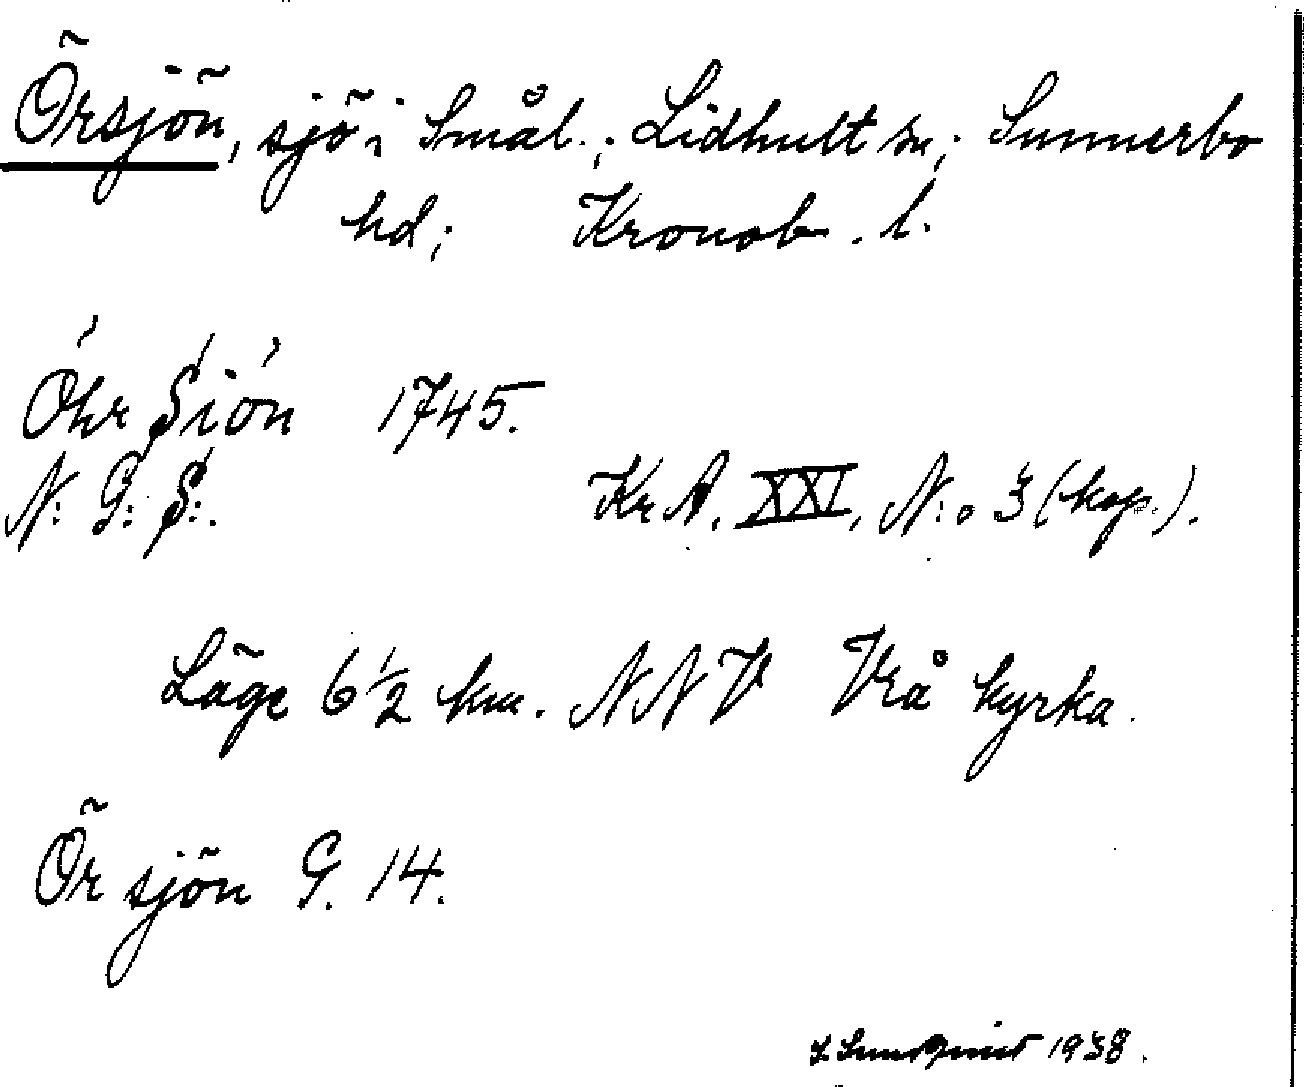 Örsjön, sjö i Smål.; Lidhult sn; Sunnerbo
hd; Kronob. l.
Óhr Siön 1745.
N: G: S:.
Kr A. XXI, N:o 3 (kop.).
Läge 6 1/2 km. NNV Vrå kyrka.
Ör sjön G. 14.
1938.